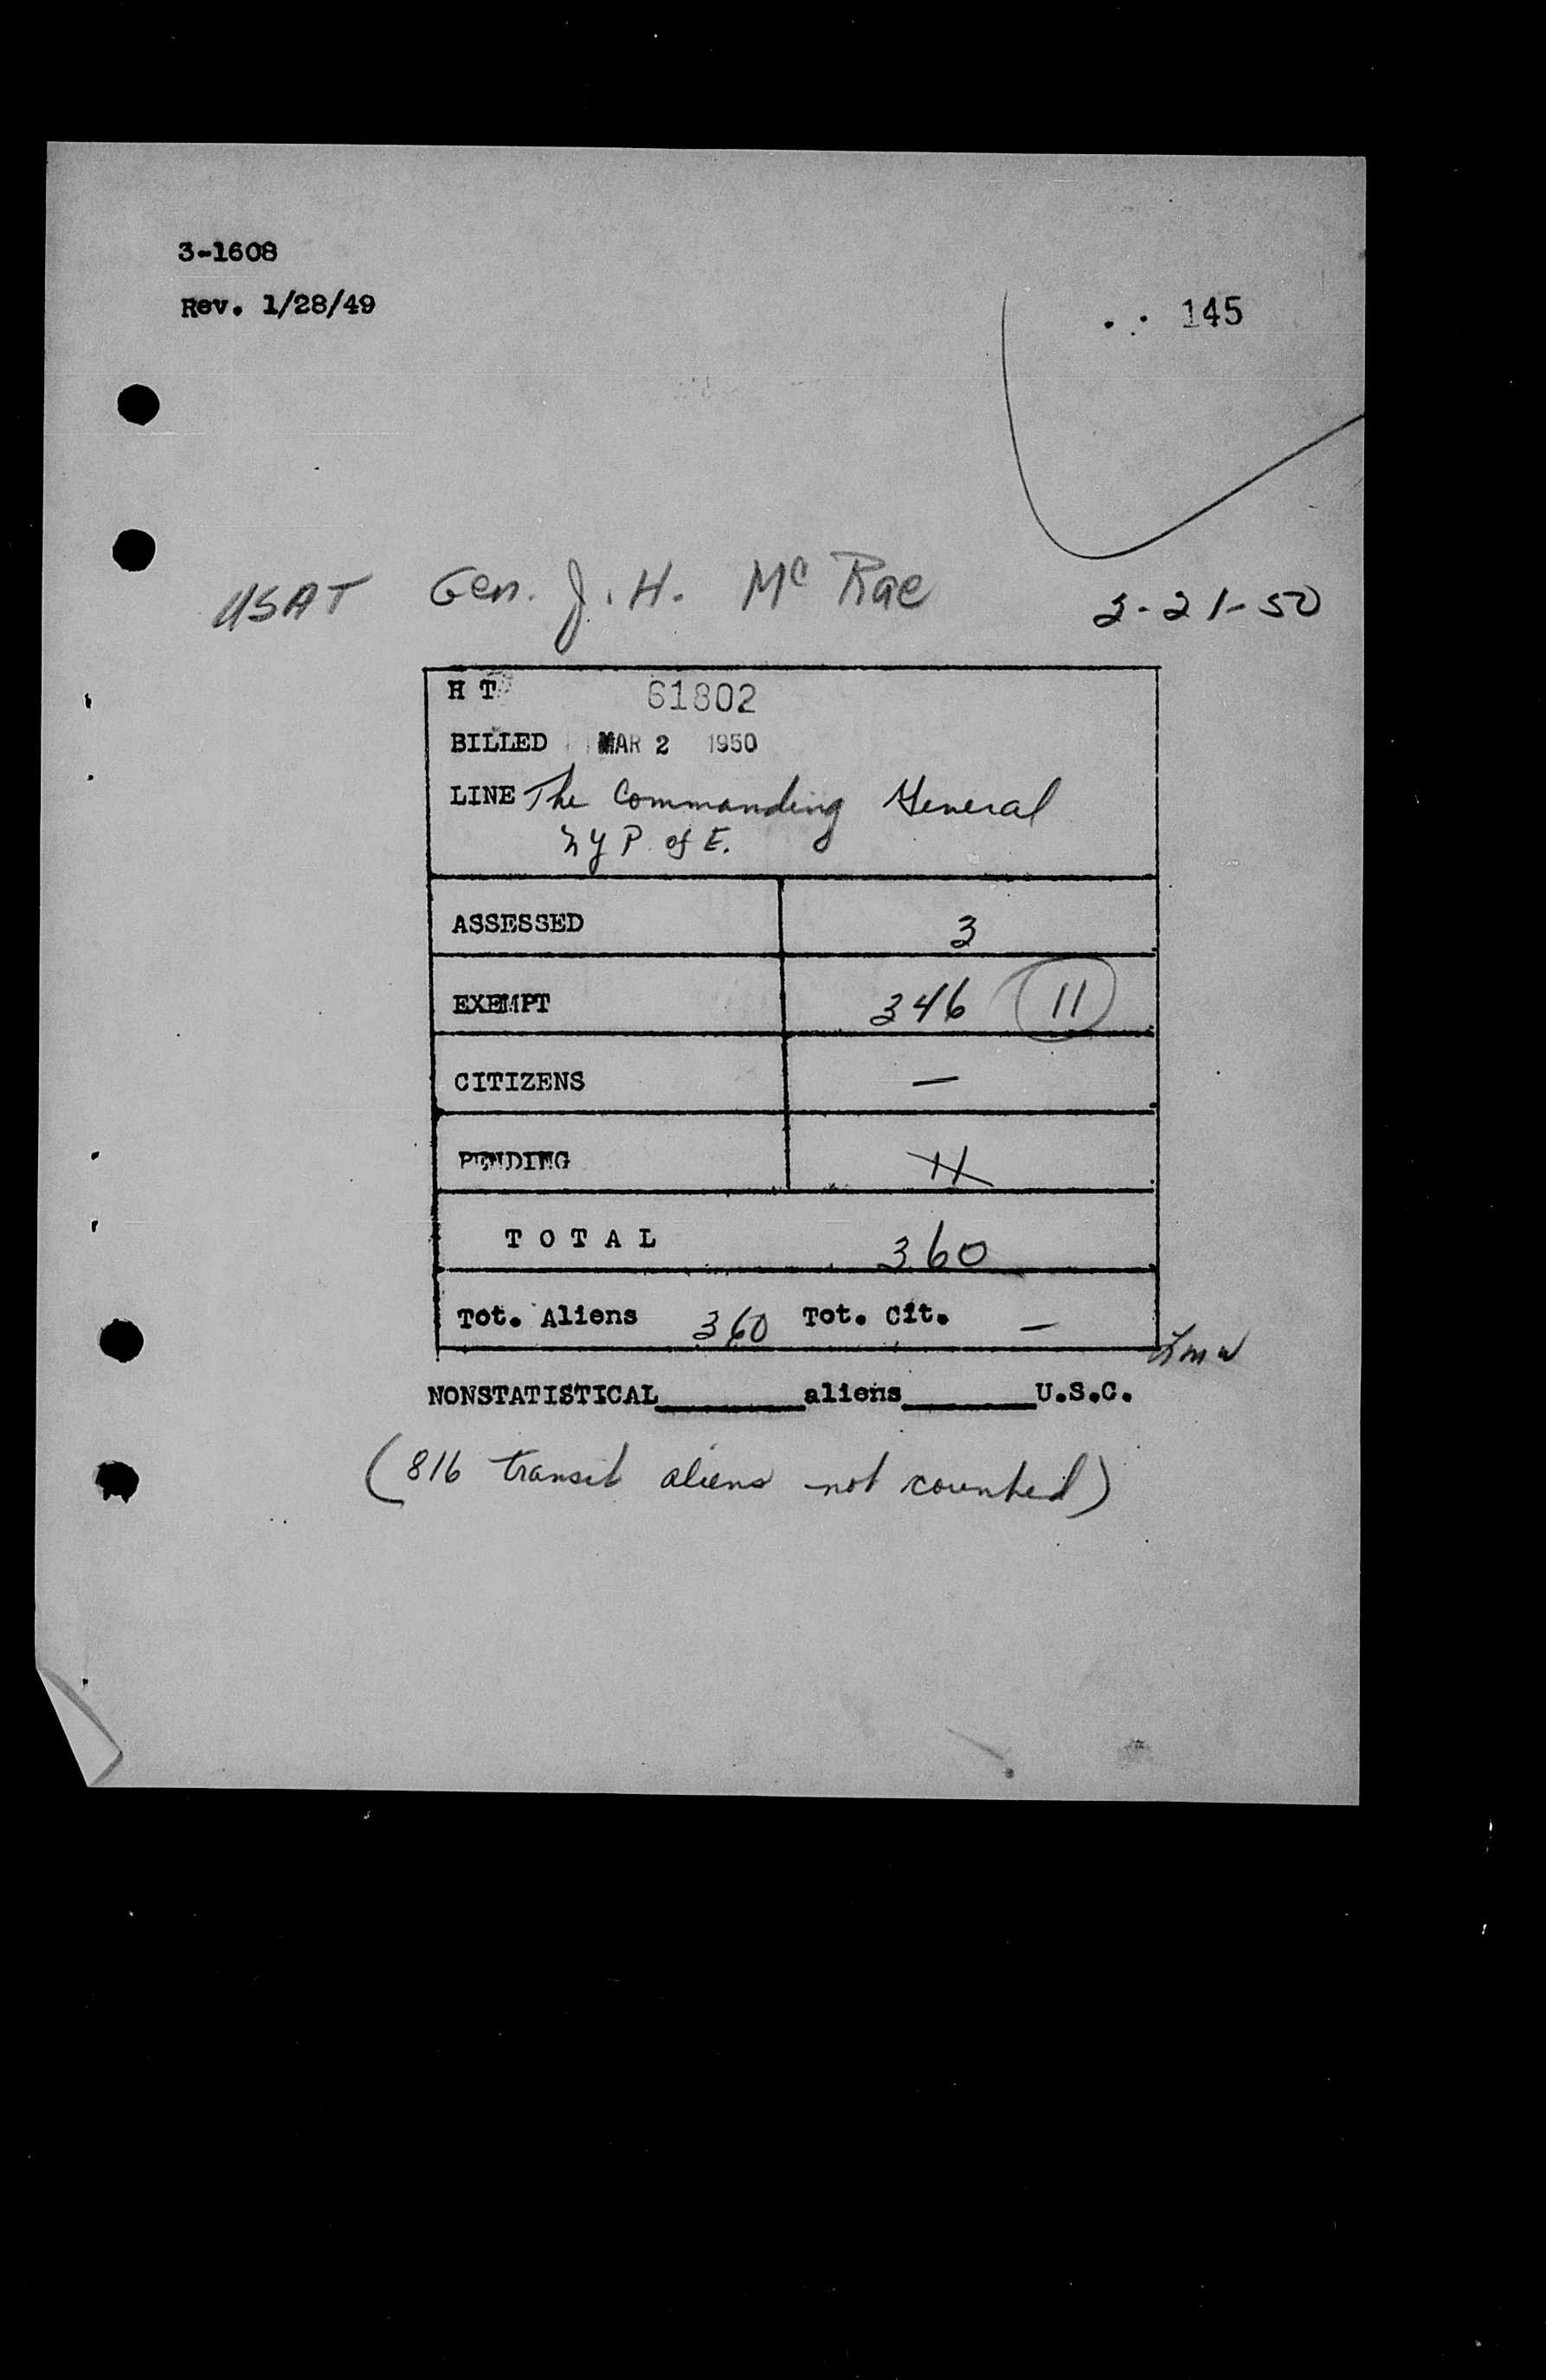 3-1608
Rev. 1/28/49
145
USAT Gen. J. H. McRae 2-21-50
H T 61802
BILLED MAR 2 1950
LINE The Commanding General
NYP of E.
ASSESSED 3
EXEMPT 346 11
CITIZENS —
PENDING 11
TOTAL 360
Tot. Aliens 360 Tot. Cit. —
NONSTATISTICAL________aliens_______U.S.C.
(816 transit aliens not counted)